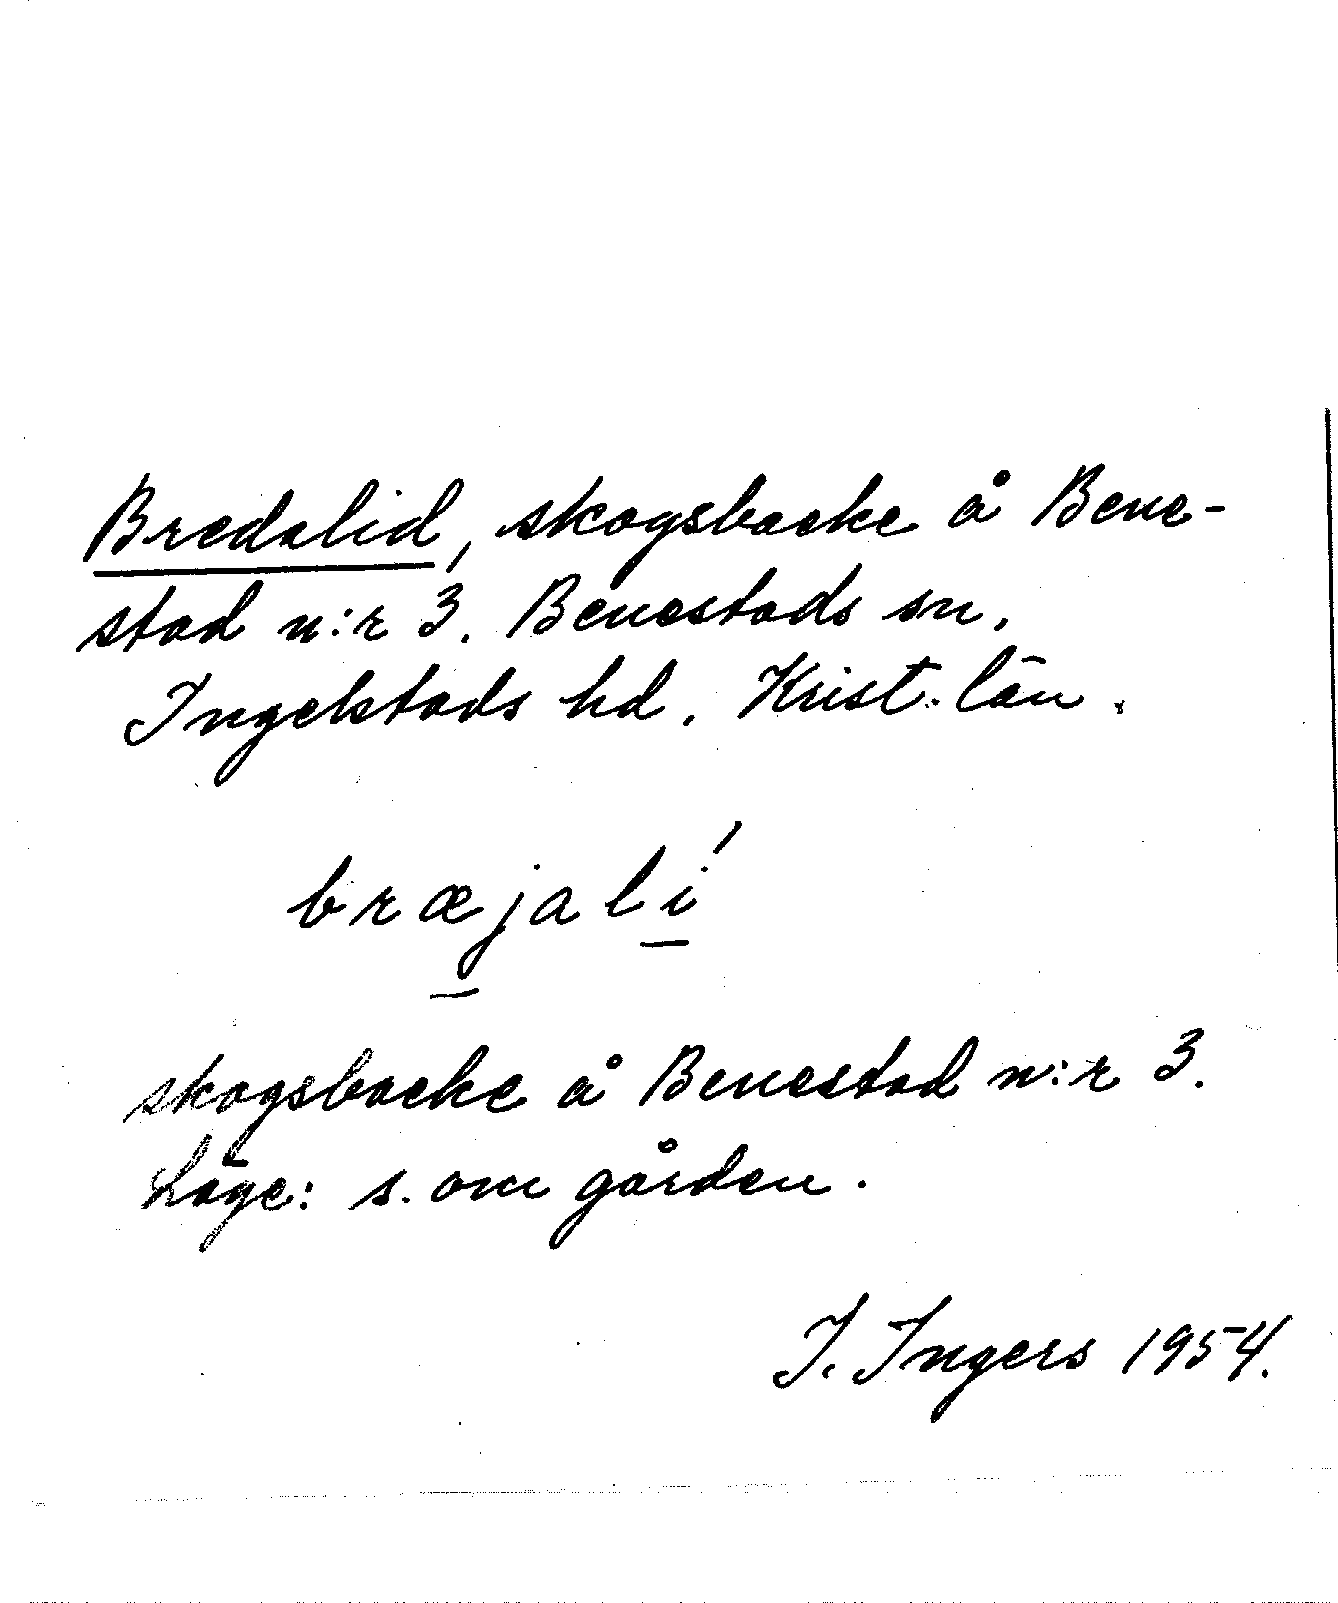 Bredalid, skogsbacke å Bene-
stad n:r 3. Benestads sn.
Ingelstads hd. Krist. län.
bræjalí
skogsbacke å Benestad n:r 3.
Läge: s. om gården.
I. Ingers 1954.